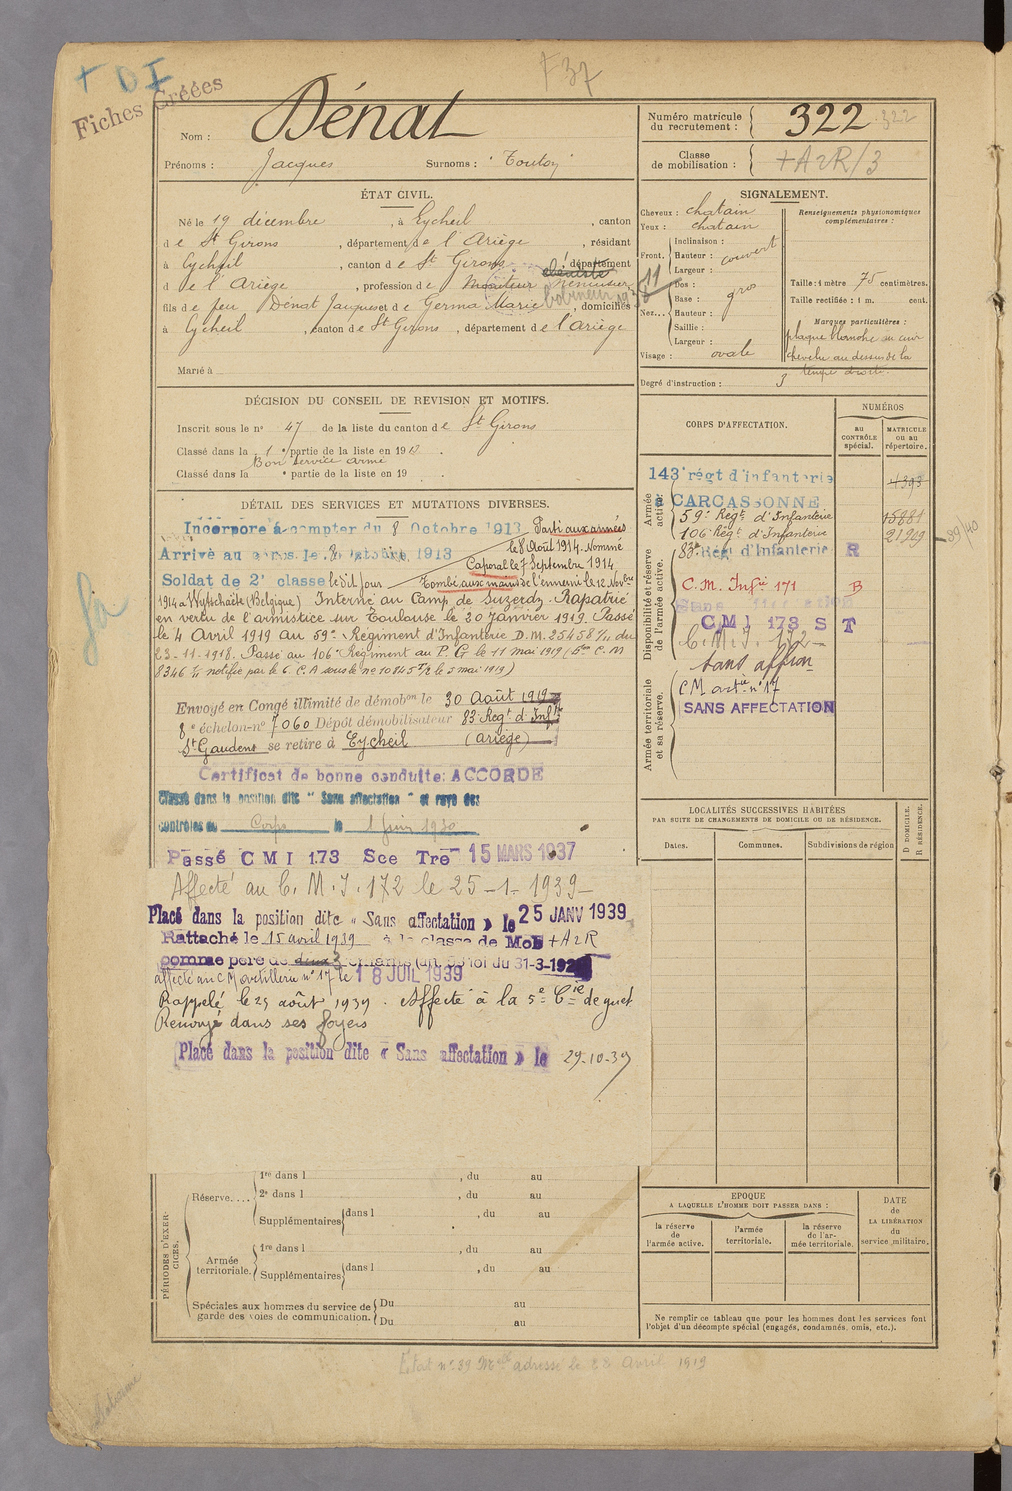 + D I
F 37
Fiches Créées
Nom : Dénat
Prénoms : Jacques Surnoms : "Toutoy"
Numéro matricule du recrutement : 322 322
Classe de mobilisation : +A2R/3
ÉTAT CIVIL.
Né le 19 décembre , à Eycheil , canton
de St Girons , département de l'Ariège , résidant
à Eycheil , canton de St Girons , département
de l'Ariège , profession de menuisier
fils de feu Dénat Jacques et de Germa Marie , domiciliés
à Eycheil , canton de St Girons , département de l'ariège
Marié à
SIGNALEMENT.
Cheveux : chatain
Yeux : chatain
Front. Inclinaison :
Hauteur : couvert
Largeur :
Nez... Dos :
Base : gros
Hauteur :
Saillie :
Largeur :
Visage : ovale
Renseignements physionomiques complémentaires :
Taille : 1 mètre 75 centimètres.
Taille rectifiée : 1 m. cent.
Marques particulières :
plaque blanche au cuir
chevelu au dessus de la
tempe droite.
Degré d'instruction : 3
DÉCISION DU CONSEIL DE REVISION ET MOTIFS.
Inscrit sous le n° 47 de la liste du canton de St Girons
Classé dans la 1e partie de la liste en 1913
Bon service armé
Classé dans la e partie de la liste en 19
DÉTAIL DES SERVICES ET MUTATIONS DIVERSES.
Incorporé à compter du 8 Octobre 1913 Parti aux armées
Arrivé au corps le 8 octobre 1913 le 8 Août 1914. Nommé
Caporal le 7 Septembre 1914
Soldat de 2e classe le dit jour Tombé aux mains de l'ennemi le 12 Novbre
1914 à Wytschaëte (Belgique) Interné au Camp de Suzerdz. Rapatrié
en vertu de l'armistice sur Toulouse le 20 Janvier 1919. Passé
le 4 Avril 1919 au 59e Régiment d'Infanterie D.M. 25458 1/11 du
23-11-1918. Passé au 106e Régiment au P. G le 11 mai 1919
Envoyé en Congé illimité de démobon le 30 Août 1919
8e échelon-n° 7060 Dépôt démobilisateur 83e Regt d'Inftie
St Gaudens se retire à Eycheil (ariège)
Certificat de bonne conduite: ACCORDÉ
Classé dans la position dite "Sans affectation" et rayé des
contrôles du Corps le 1 Juin 1930
Passé C M I 173 Sce Tre 15 MARS 1937
Affecté au C. M. I. 172 le 25-1-1939-
Placé dans la position dite « Sans affectation » le 25 JANV 1939
Rattaché le 15 avril 1939 à la classe de Mob +A2R
comme père de 3 enfants (art. 58 loi du 31-3-1928)
affecté au C M artillerie n° 17 le 18 JUIL 1939
Rappelé le 25 août 1939. Affecté à la 5e Cie de guet
Renvoyé dans ses foyers
Placé dans la position dite « Sans affectation » le 29-10-39
CORPS D'AFFECTATION.
NUMÉROS
au CONTRÔLE spécial.
MATRICULE ou au répertoire.
Armée active.
143e régt d'infanterie 4393
à CARCASSONNE
59e Regt d'Infanterie 15881
106e Regt d'Infanterie 21209
39/40
Disponibilité et réserve de l'armée active.
83e Rég. d'Infanterie R
C. M. Infie 171 B
Sans affectation
CMI 173 S T
C. M. I. 172
Sans affton
Armée territoriale et sa réserve.
CM artie n° 17
SANS AFFECTATION
LOCALITÉS SUCCESSIVES HABITÉES
PAR SUITE DE CHANGEMENTS DE DOMICILE OU DE RÉSIDENCE.
Dates.
Communes.
Subdivisions de région
D DOMICILE.
R RÉSIDENCE.
PÉRIODES D'EXERCICES.
Réserve....
1re dans l , du au
2e dans l , du au
Supplémentaires dans l , du au
Armée territoriale.
1re dans l , du au
Supplémentaires dans l , du au
Spéciales aux hommes du service de garde des voies de communication.
Du au
Du au
EPOQUE
A LAQUELLE L'HOMME DOIT PASSER DANS :
la réserve de l'armée active.
l'armée territoriale.
la réserve de l'armée territoriale.
DATE de LA LIBÉRATION du service militaire.
Ne remplir ce tableau que pour les hommes dont les services font
l'objet d'un décompte spécial (engagés, condamnés, omis, etc.).
Etat n° 39 Mle adressé le 28 Avril 1919